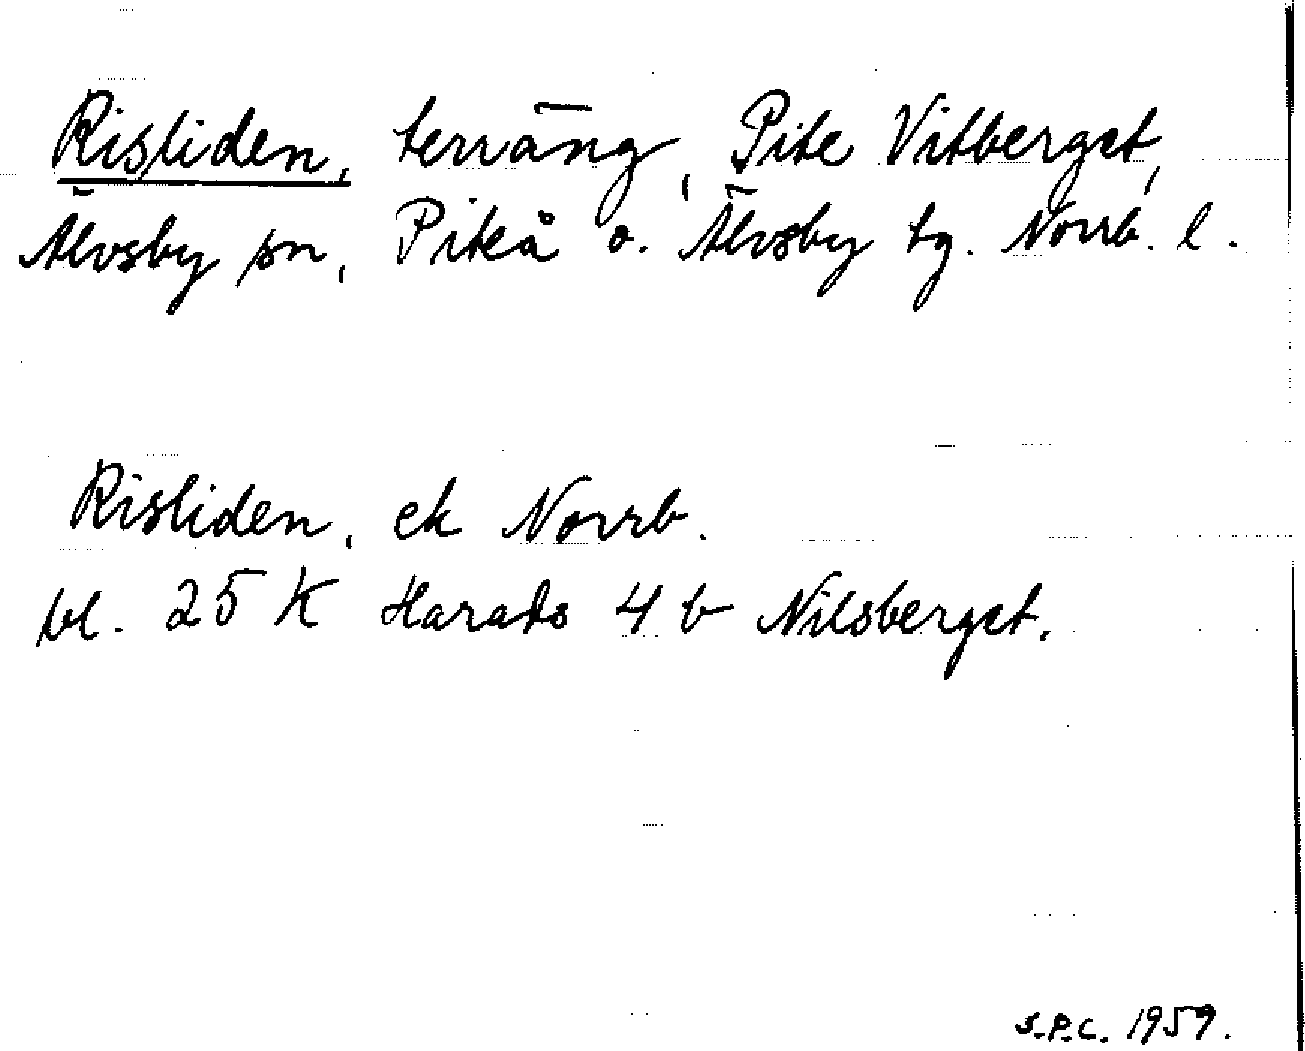 Risliden, terräng, Pite Vitberget,
Älvsby sn, Piteå o. Älvsby tg. Norrb. l.
Risliden, ek Norrb.
bl. 25 K Harads 4 b Nilsberget.
S.P.C. 1959.